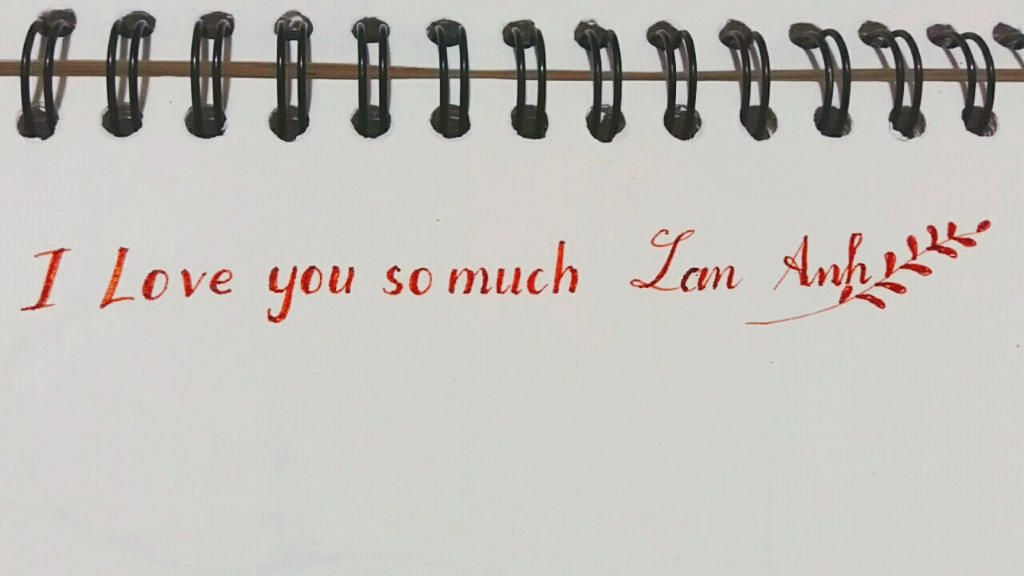 I Love you so much Lan Anh